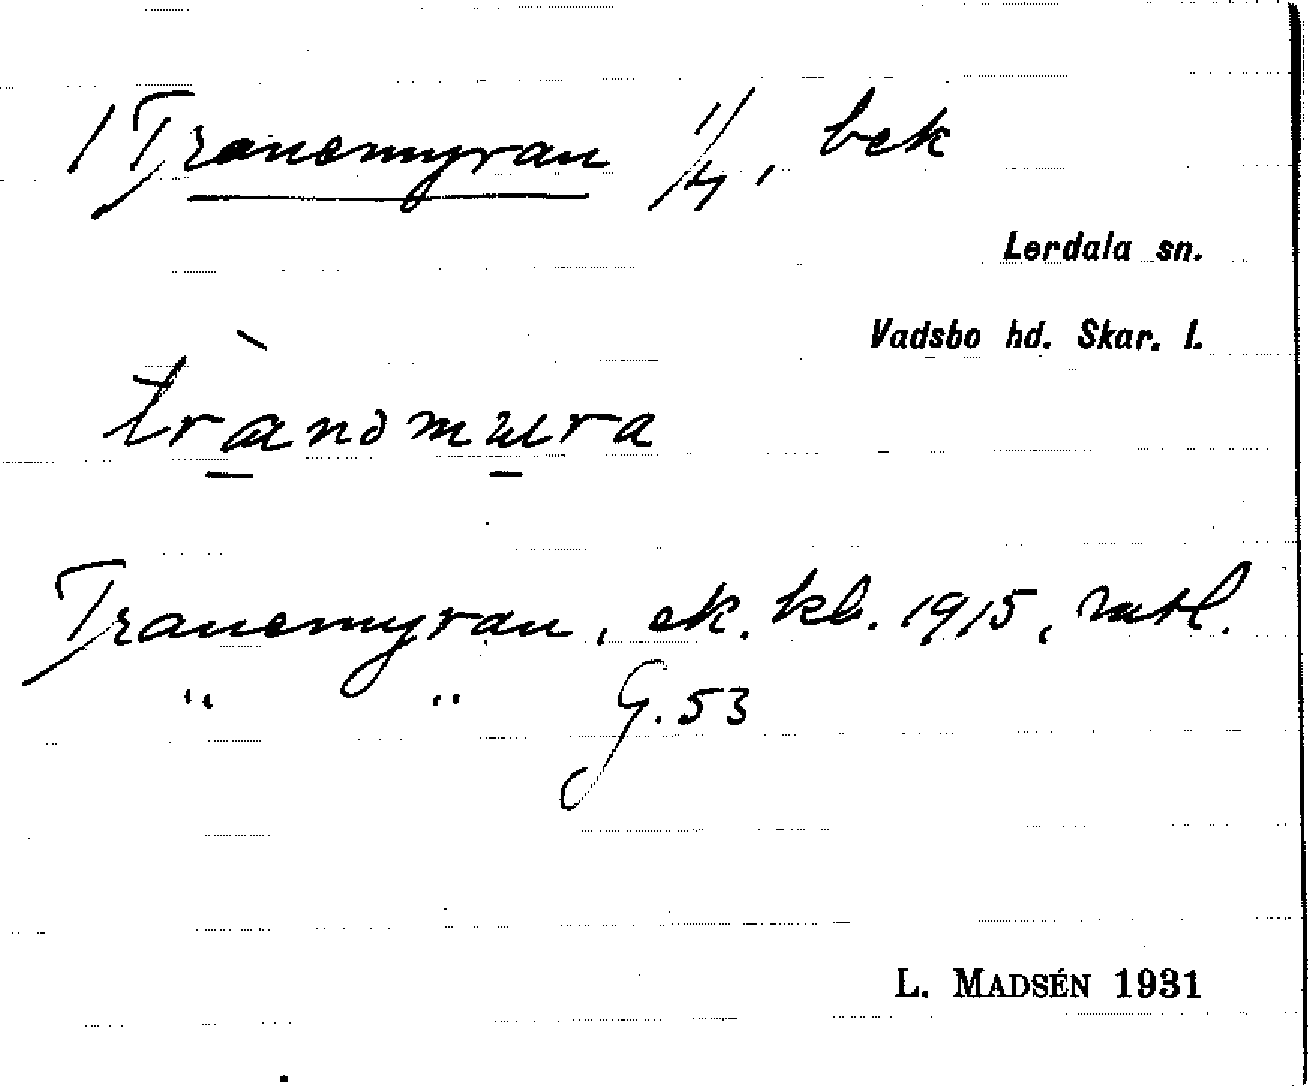 1 Tranemyran 1/4, bek
Lerdala sn.
Vadsbo hd. Skar. l.
Tranemyran, ek. kb. 1915, mtl.
" " G. 53
L. MADSÉN 1931